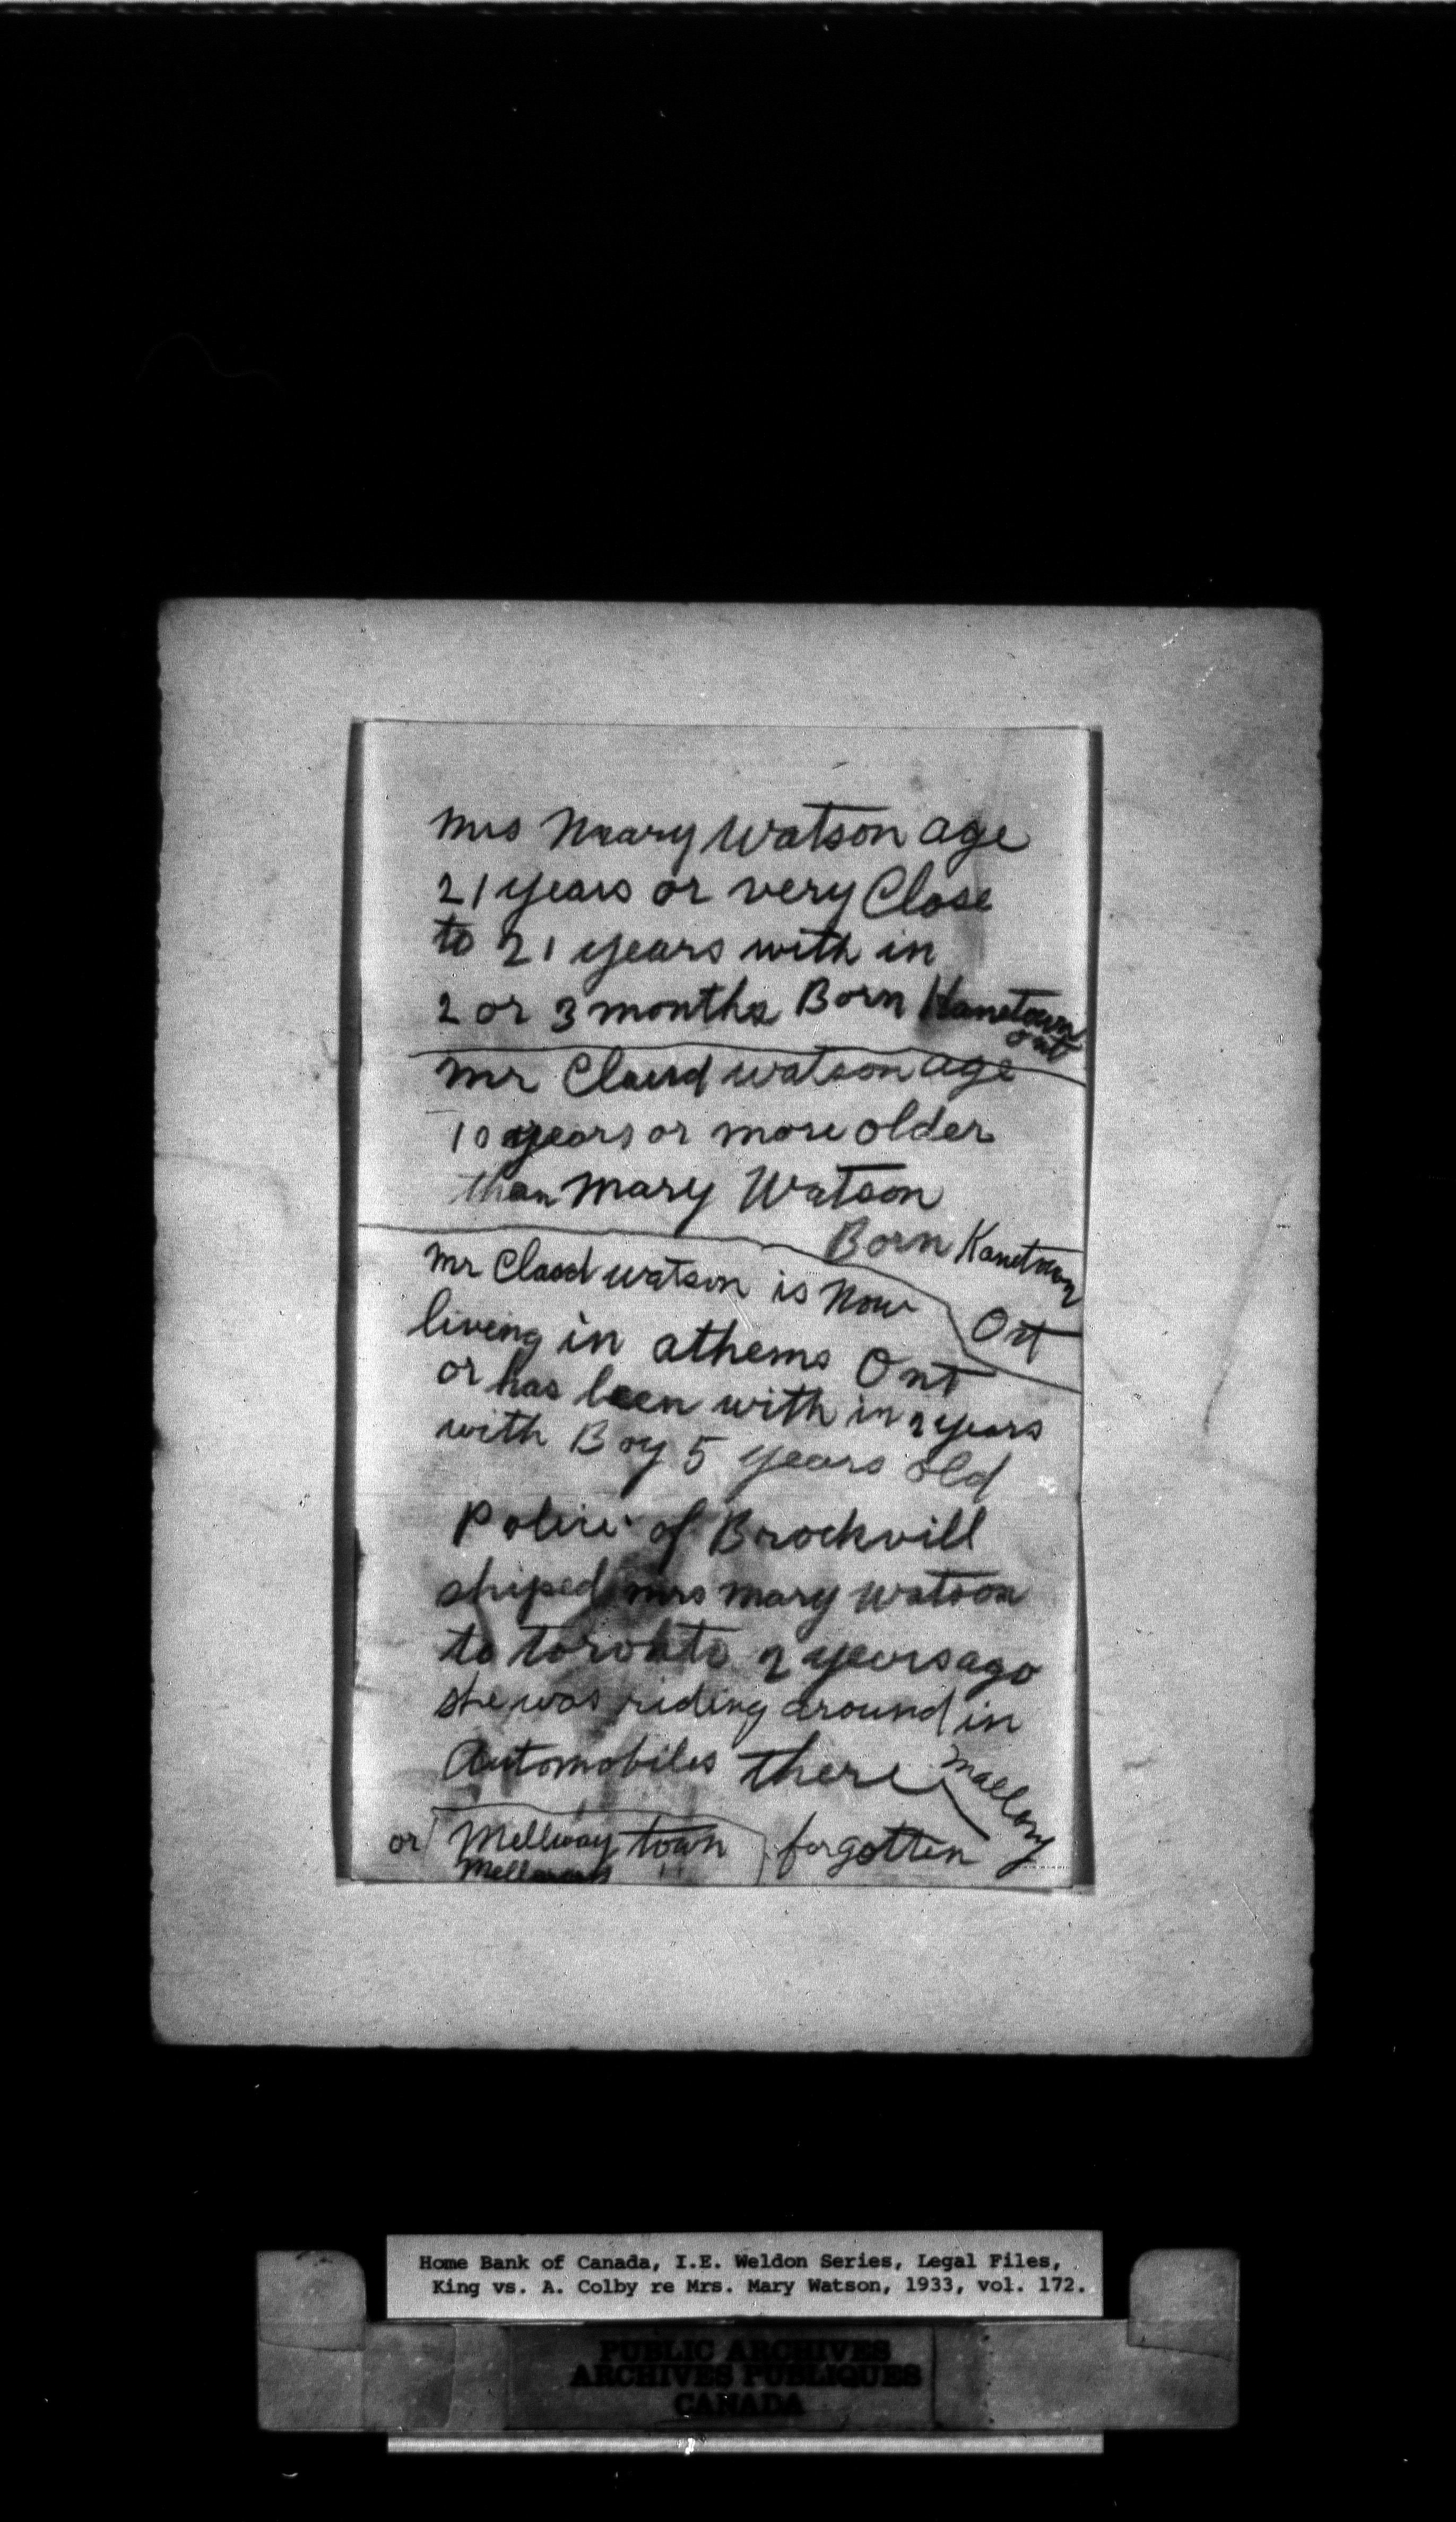 Mrs Mary Watson age
21 years or very Close
to 21 years with in
2 or 3 months Born Kanetown
Ont
Mr Claud Watson age
10 years or more older
than Mary Watson
Born Kanetown
Ont
Mr Claud Watson is Now
living in athens Ont
or has been with in 2 years
with Boy 5 years old
Police of Brockvill
shiped Mrs Mary Watson
to toronto 2 years ago
she was riding around in
Automobiles there
Mallory
or Mellway town forgotten
Home Bank of Canada, I.E. Weldon Series, Legal Files,
King vs. A. Colby re Mrs. Mary Watson, 1933, vol. 172.
PUBLIC ARCHIVES
ARCHIVES PUBLIQUES
CANADA